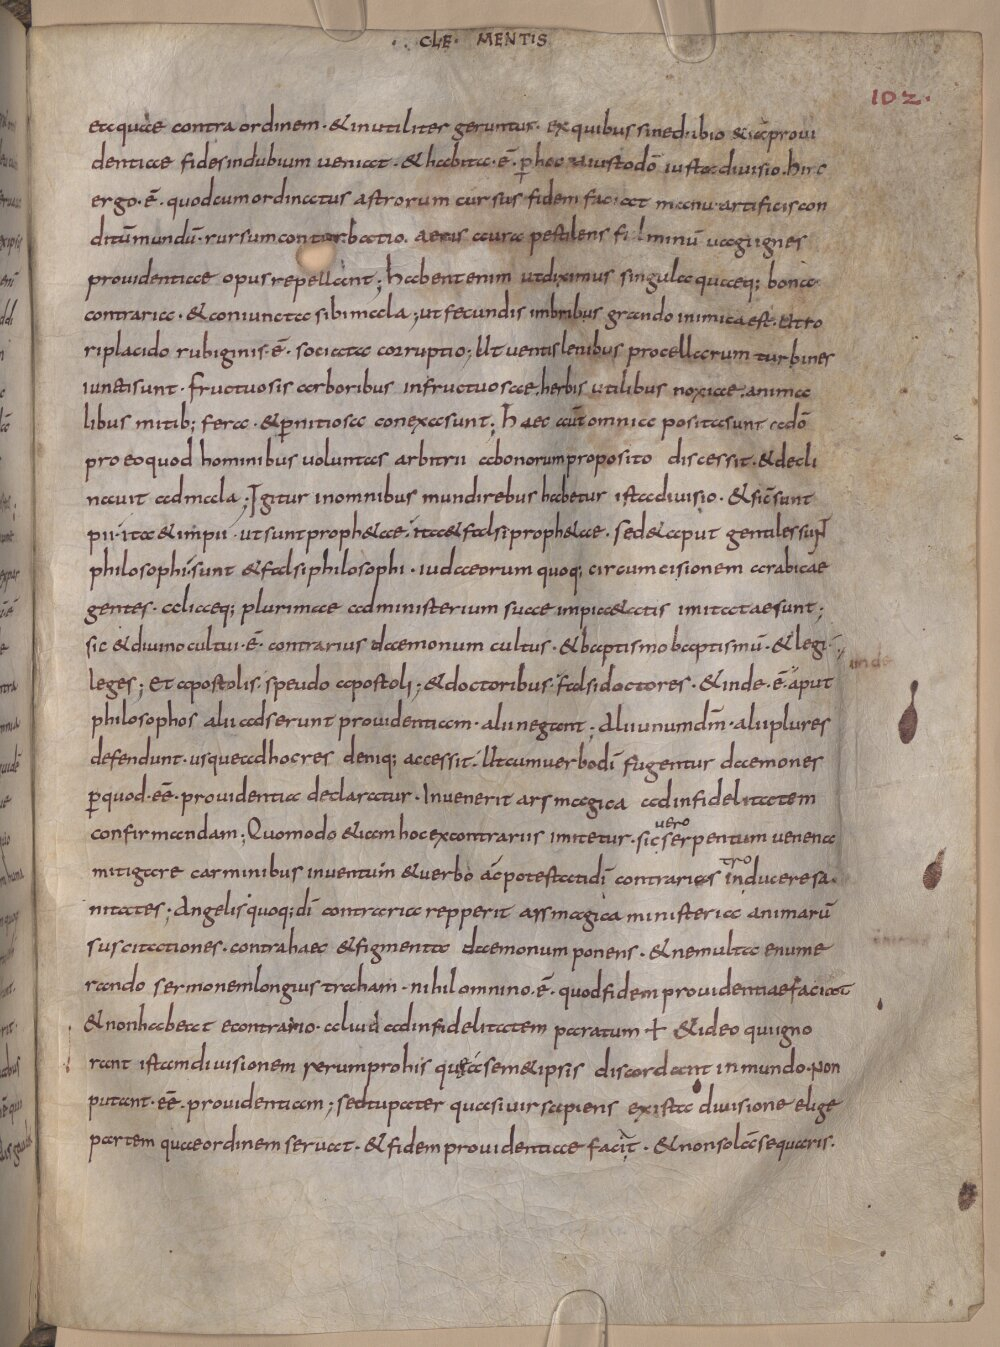 CLEMENTIS
102.
et quae contra ordinem · & inutiliter geruntur · ex quibus sine dubio & iā proui
dentiae fides indubium ueniat · & habita · ē · p hoc a iusto dō iusta diuisio · hinc
ergo · ē · quod cum ordinatus astrorum cursus fidem faciat manu artificis con
ditū mundū · rursum conturbatio aeris aura pestilens fulminū uagi ignes
prouidentiae opus repellant ; habent enim ut diximus singula quaeq; bona
contraria · & coniuncta sibi mala ; ut fecundis imbribus grando inimica est · Et ro
ri placido rubiginis · ē · sociata corruptio ; Et uentis lenibus procellarum turbines
iuncti sunt · fructuosis arboribus infructuosae, herbis utilibus noxiae, anima
libus mitib; fera · & pnitiosa conexa sunt ; Haec aūt omnia posita sunt a dō
pro eo quod hominibus uoluntas arbitrii a bonorum proposito discessit · & decli
nauit ad mala ; Igitur in omnibus mundi rebus habetur ista diuisio · & sic sunt
pii · ita & impii · ut sunt proph&ae · ita & falsi proph&ae · sed & aput gentiles sunt
philosophi · sunt & falsi philosophi · iudaeorum quoq; circumcisionem arabicae
gentes · aliaeq; plurimae ad ministerium suae impi&atis imitatae sunt ;
sic & diuino cultui · ē · contrarius daemonum cultus · & baptismo baptismū · & legi
leges ; Et apostolis · speudo apostoli ; & doctoribus · falsi doctores · & inde · ē · aput
inde
philosophos alii adserunt prouidentiam · alii negant ; Alii unum dm̄ · alii plures
defendunt · usque ad hoc res deniq; accessit · Ut cum uerbo dī fugentur daemones
p quod · eē · prouidentia declaratur · Inuenerit ars magica ad infidelitatem
confirmandam ; Quomodo &iam hoc ex contrariis imitetur · sic uero serpentum uenena
mitigare carminibus inuentum & uerbo ac potestati dī contrarias introducere sa
nitates ; Angelis quoq; dī contraria repperit ars magica ministeria animarū
suscitationes · contra haec & figmenta daemonum ponens · & ne multa enume
rando sermonem longius traham · nihil omnino · ē · quod fidem prouidentiae faciat
& non habeat e contrario · aliud ad infidelitatem paratum + & ideo qui igno
rant istam diuisionem rerum pro his semet ipsis discordant in mundo · Non
putant · eē · prouidentiam ; sed tu pater quasi uir sapiens ex ista diuisione elige
partem quae ordinem seruat · & fidem prouidentiae facit · & non solā sequaris ·